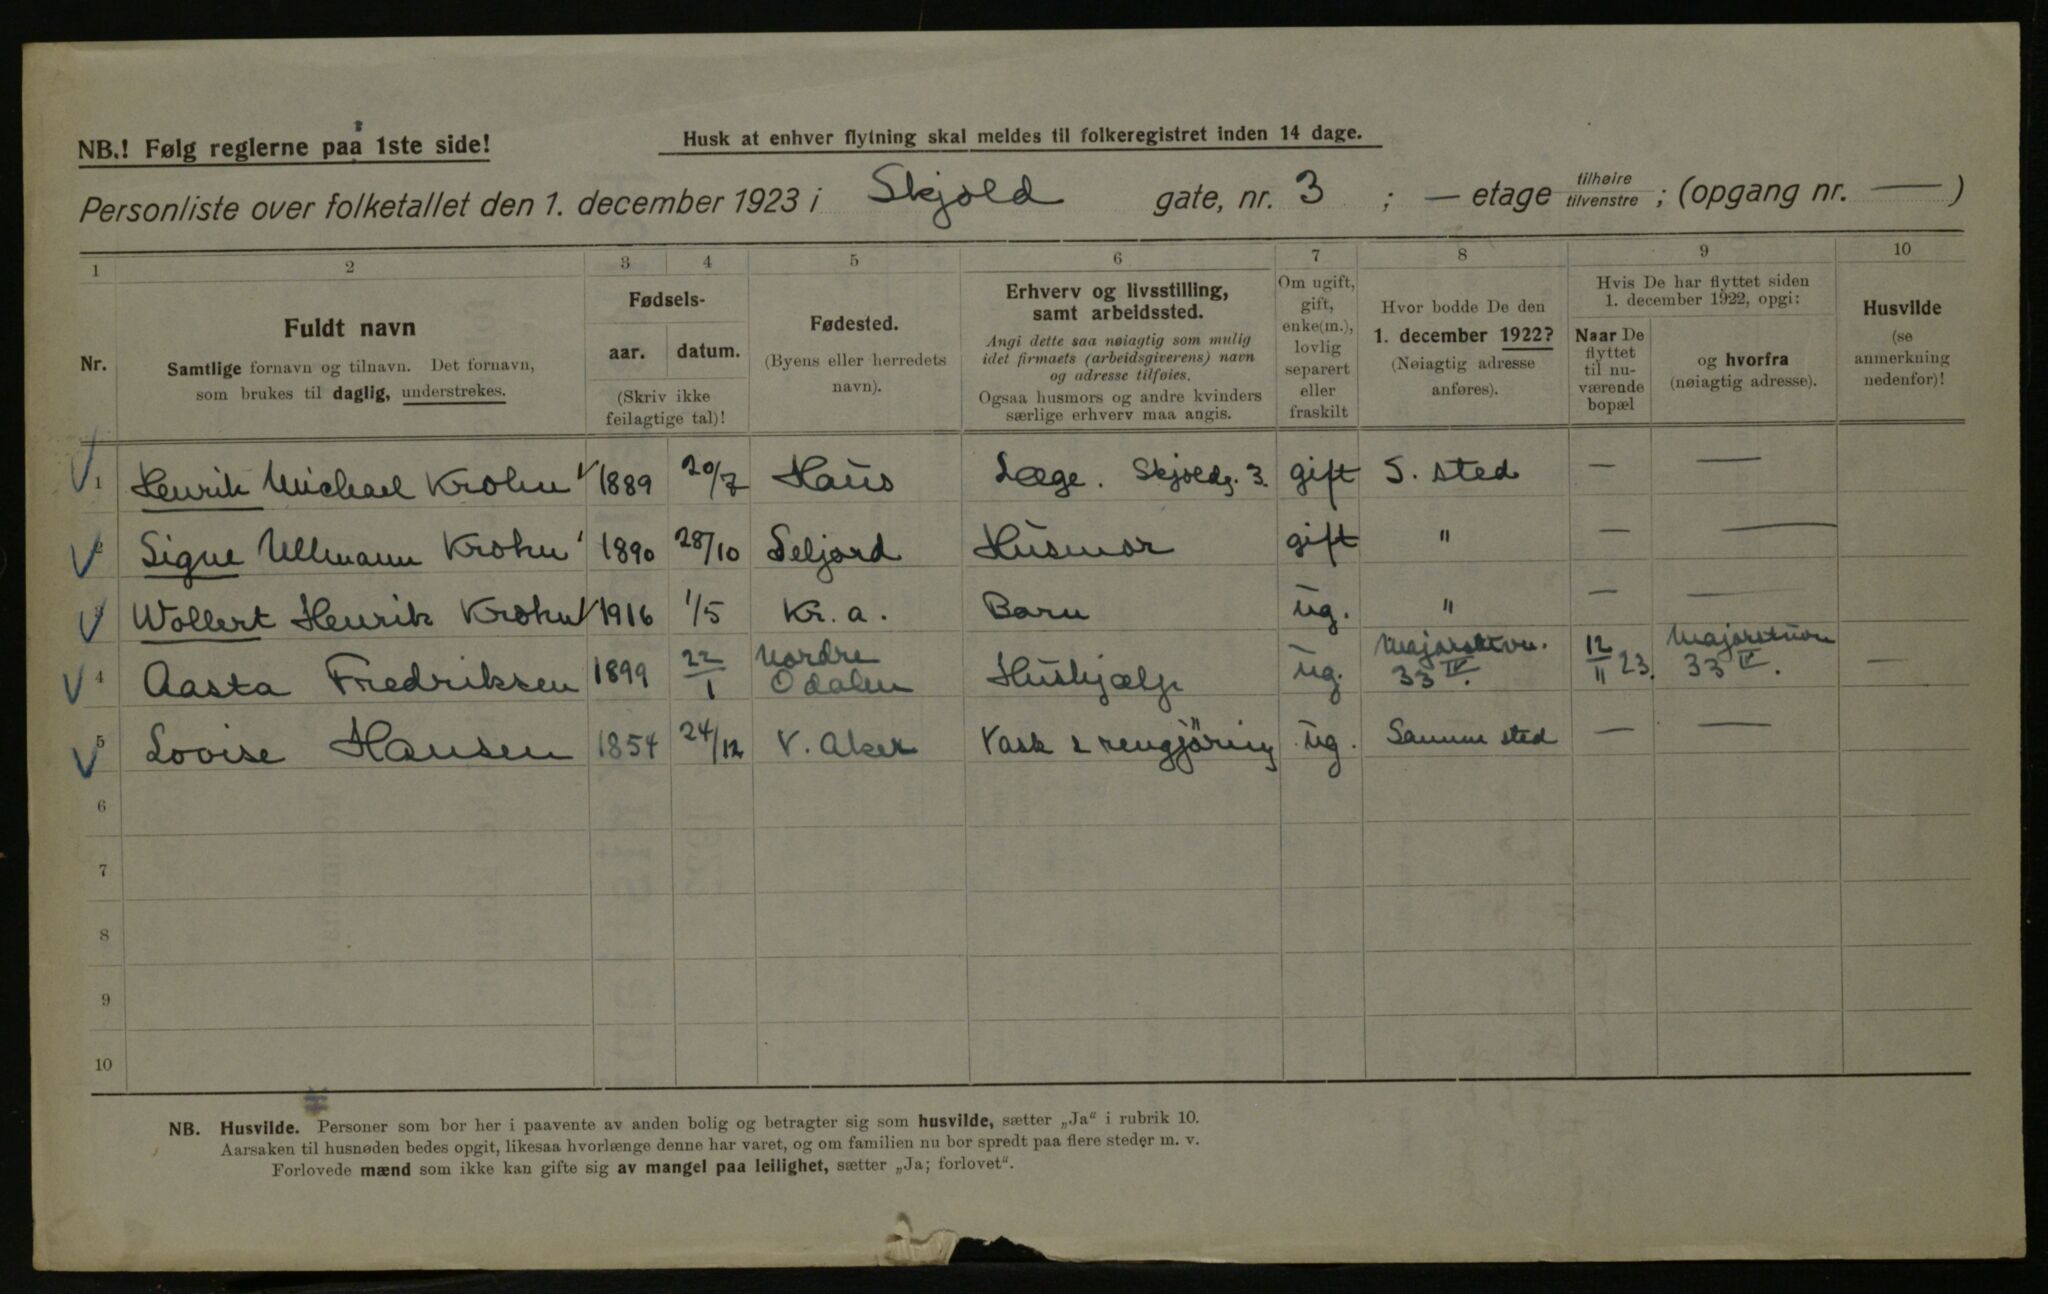 NB.! Følg reglerne paa 1ste side!
Husk at enhver flytning skal meldes til folkeregistret inden 14 dage.
Personliste over folketallet den 1. december 1923 i Skjold gate, nr. 3 ; — etage tilhøire tilvenstre ; (opgang nr. — )
1 2 3 4 5 6 7 8 9 10
Nr.
Fuldt navn
Samtlige fornavn og tilnavn. Det fornavn,
som brukes til daglig, understrekes.
Fødsels-
aar. datum.
(Skriv ikke
feilagtige tal)!
Fødested.
(Byens eller herredets
navn).
Erhverv og livsstilling,
samt arbeidssted.
Angi dette saa nøiagtig som mulig
idet firmaets (arbeidsgiverens) navn
og adresse tilføies.
Ogsaa husmors og andre kvinders
særlige erhverv maa angis.
Om ugift,
gift,
enke(m.),
lovlig
separert
eller
fraskilt
Hvor bodde De den
1. december 1922?
(Nøiagtig adresse
anføres).
Hvis De har flyttet siden
1. december 1922, opgi:
Naar De
flyttet
til nu-
værende
bopæl
og hvorfra
(nøiagtig adresse).
Husvilde
(se
anmerkning
nedenfor)!
1 Henrik Michael Krohn 1889 20/7 Haus Læge. Skjoldg. 3. gift S. sted — —
2 Signe Ullmann Krohn 1890 28/10 Seljord Husmor gift " — —
3 Wollert Henrik Krohn 1916 1/5 Kr. a. Barn ug. " — —
4 Aasta Fredriksen 1899 22/1 Nordre Odalen Hushjælp ug. Majorstuvn. 33 IV. 12/11 23. Majorstuvn 33 IV. —
5 Lovise Hansen 1854 24/12 V. Aker Vask & rengjöring ug. Samme sted — —
6
7
8
9
10
NB. Husvilde. Personer som bor her i paavente av anden bolig og betragter sig som husvilde, sætter „Ja“ i rubrik 10.
Aarsaken til husnøden bedes opgit, likesaa hvorlænge denne har varet, og om familien nu bor spredt paa flere steder m. v.
Forlovede mænd som ikke kan gifte sig av mangel paa leilighet, sætter „Ja; forlovet“.